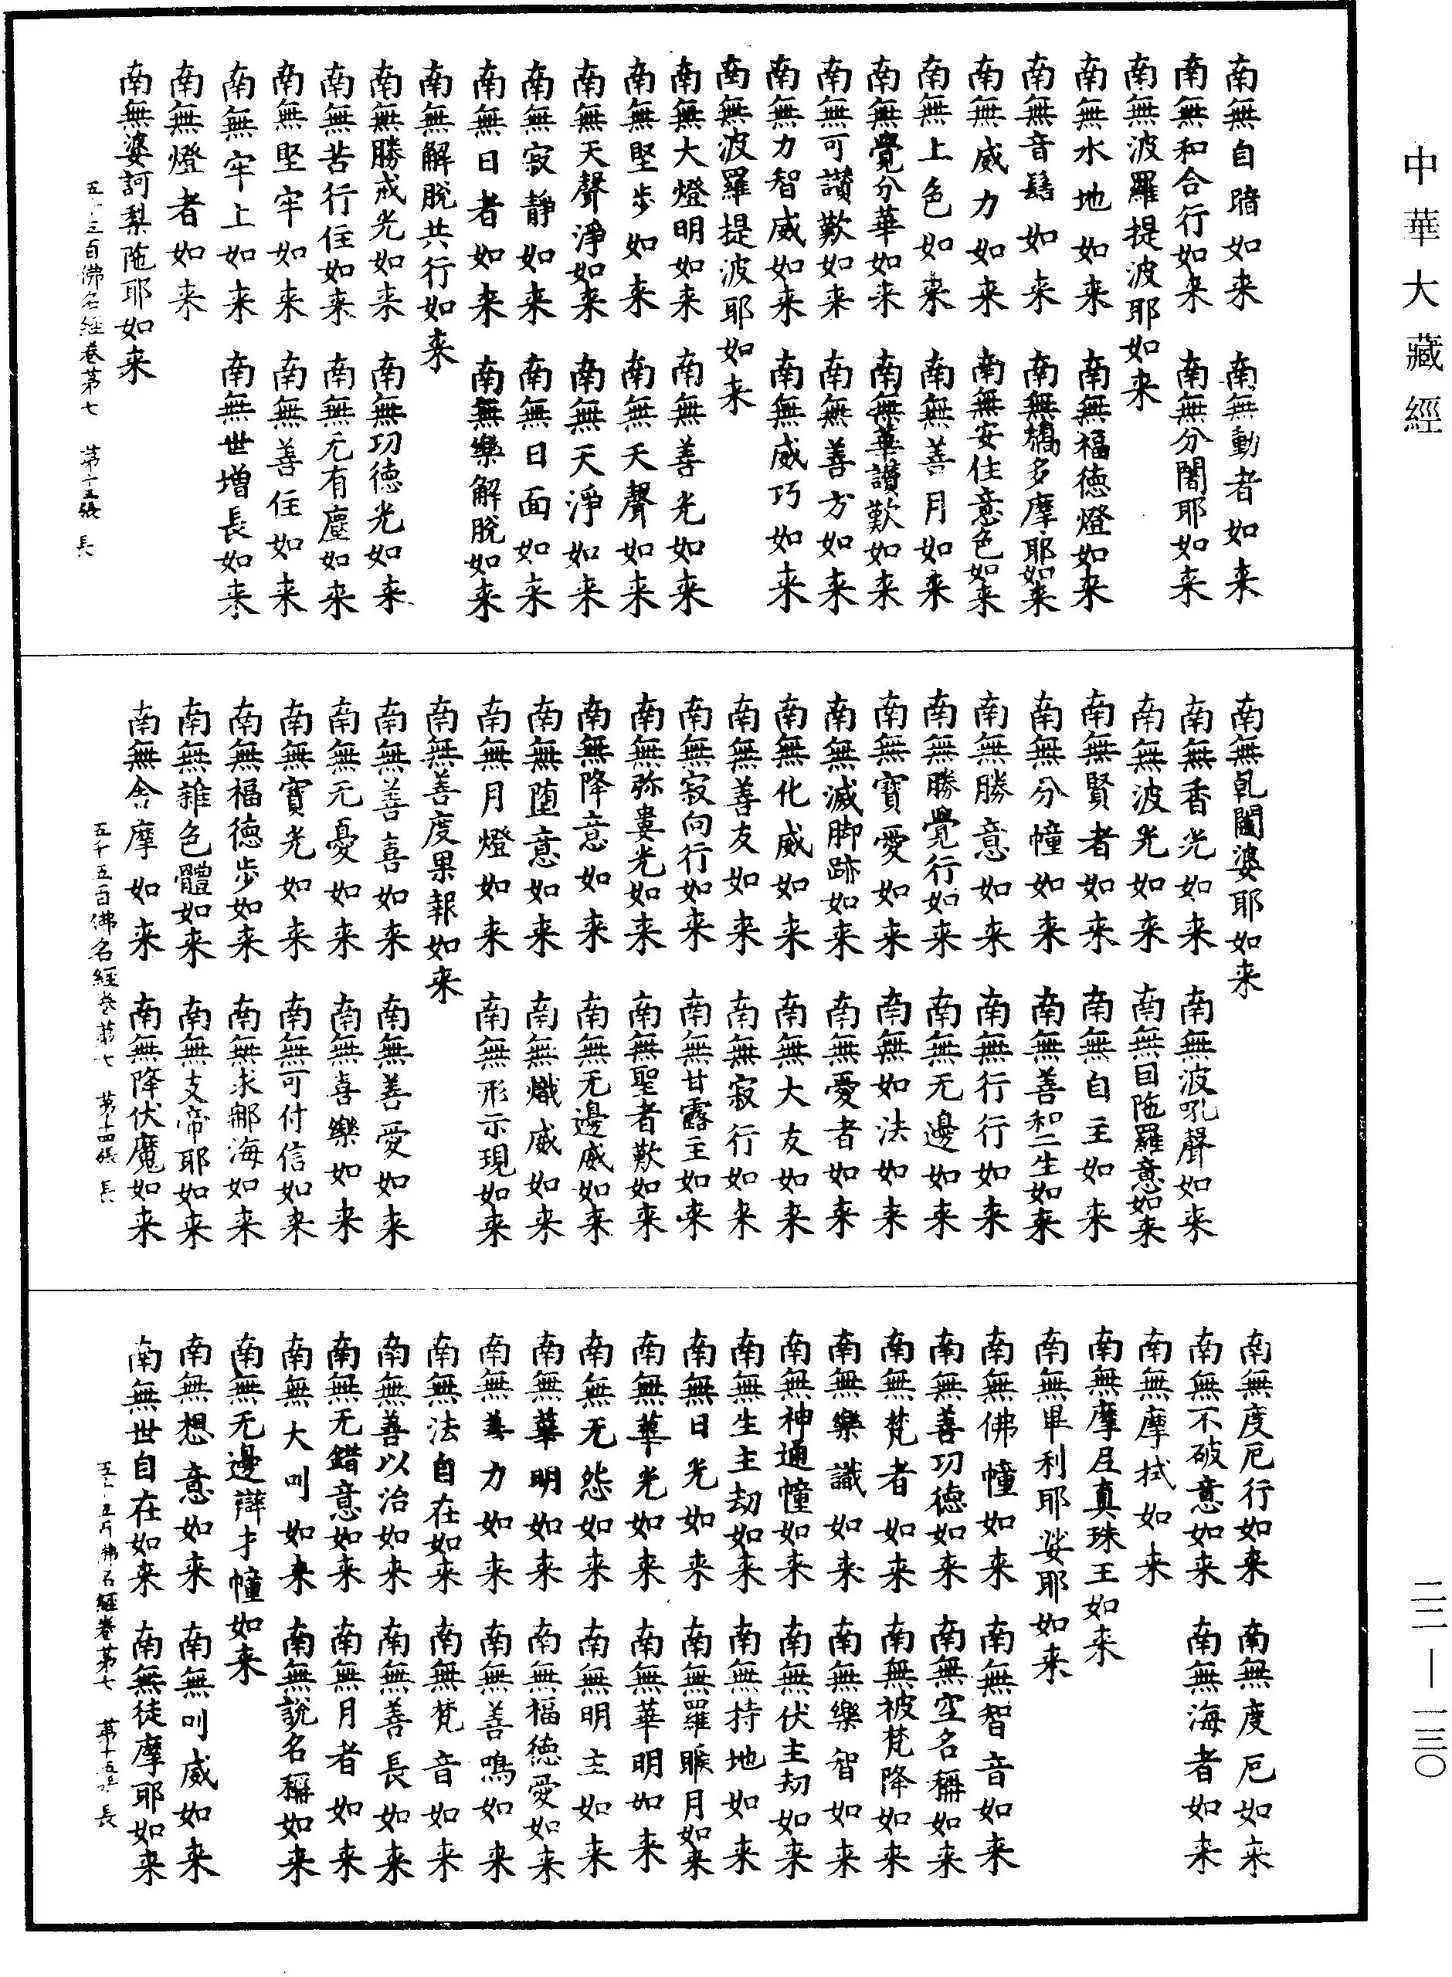 中華大藏經
南無自䁬如来　南無動者如来
南無和合行如来　南無分闍耶如来
南無波羅提波耶如来
南無水地如来　南無福徳燈如来
南無音髻如来　南無憍多摩耶如来
南無威力如来　南無安住意色如来
南無上色如来　南無善月如来
南無覺分華如来　南無華讃歎如来
南無可讃歎如来　南無善方如来
南無力智威如来　南無威巧如来
南無波羅提波耶如来
南無大燈明如来　南無善光如来
南無堅步如来　南無天聲如来
南無天聲淨如来　南無天淨如来
南無寂靜如来　南無日面如来
南無日者如来　南無樂解脫如来
南無解脫共行如来
南無勝戒光如来　南無功徳光如来
南無苦行住如来　南無无有塵如来
南無堅牢如来　南無善住如来
南無牢上如来　南無世增長如来
南無燈者如来
南無婆訶梨陁耶如来
佛名經卷第七
南無乹闥婆耶如来
南無香光如来　南無波吼聲如来
南無波光如来　南無目陁羅意如来
南無賢者如来　南無自主如来
南無分幢如来　南無善和二生如来
南無勝意如来　南無行行如来
南無勝覺行如来　南無无邊如来
南無寶愛如来　南無如法如来
南無滅脚跡如来　南無愛者如来
南無化威如来　南無大友如来
南無善友如来　南無寂行如来
南無寂向行如来　南無甘露主如来
南無弥婁光如来　南無聖者歎如来
南無降意如来　南無无邊威如来
南無墮意如来　南無熾威如来
南無月燈如来　南無形示現如来
南無善度果報如来
南無善喜如来　南無善愛如来
南無无憂如来　南無喜樂如来
南無寶光如来　南無可付信如来
南無福徳步如来　南無求那海如来
南無雜色體如来　南無支帝耶如来
南無舍摩如来　南無降伏魔如来
五千五百佛名經卷第七　第十四張　長
南無度厄行如来　南無度厄如来
南無不破意如来　南無海者如来
南無摩拭如来
南無摩尼真珠王如来
南無畢利耶娑耶如来
南無佛幢如来　南無智音如来
南無善功徳如来　南無空名稱如来
南無梵者如来　南無被梵降如来
南無樂識如来　南無樂智如来
南無神通幢如来　南無伏主劫如来
南無生主劫如来　南無持地如来
南無日光如来　南無羅睺月如来
南無華光如来　南無華明如来
南無无怨如来　南無明主如来
南無華明如来　南無福徳愛如来
南無善力如来　南無善鳴如来
南無法自在如来　南無梵音如来
南無善以治如来　南無善長如来
南無无錯意如来　南無月者如来
南無大叫如来　南無說名稱如来
南無无邊辯才幢如来
南無想意如来　南無叫威如来
南無世自在如来　南無徒摩耶如来
佛名經卷第七
二二—一三〇